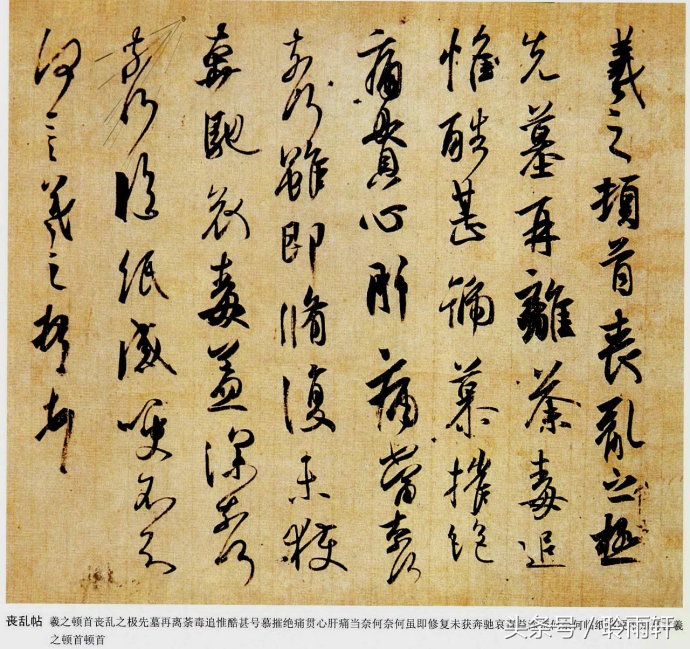 羲之頓首喪亂之極
先墓再離荼毒追
惟酷甚號慕摧絕
痛貫心肝痛當奈何
奈何雖即脩復未獲
奔馳哀毒益深奈何
奈何臨紙感哽不知
何言羲之頓首頓首
丧乱帖 羲之顿首丧乱之极先墓再离荼毒追惟酷甚号慕摧绝痛贯心肝痛当奈何奈何虽即修复未获奔驰哀 何临纸 羲
之顿首顿首
头条号 / 聆雨轩